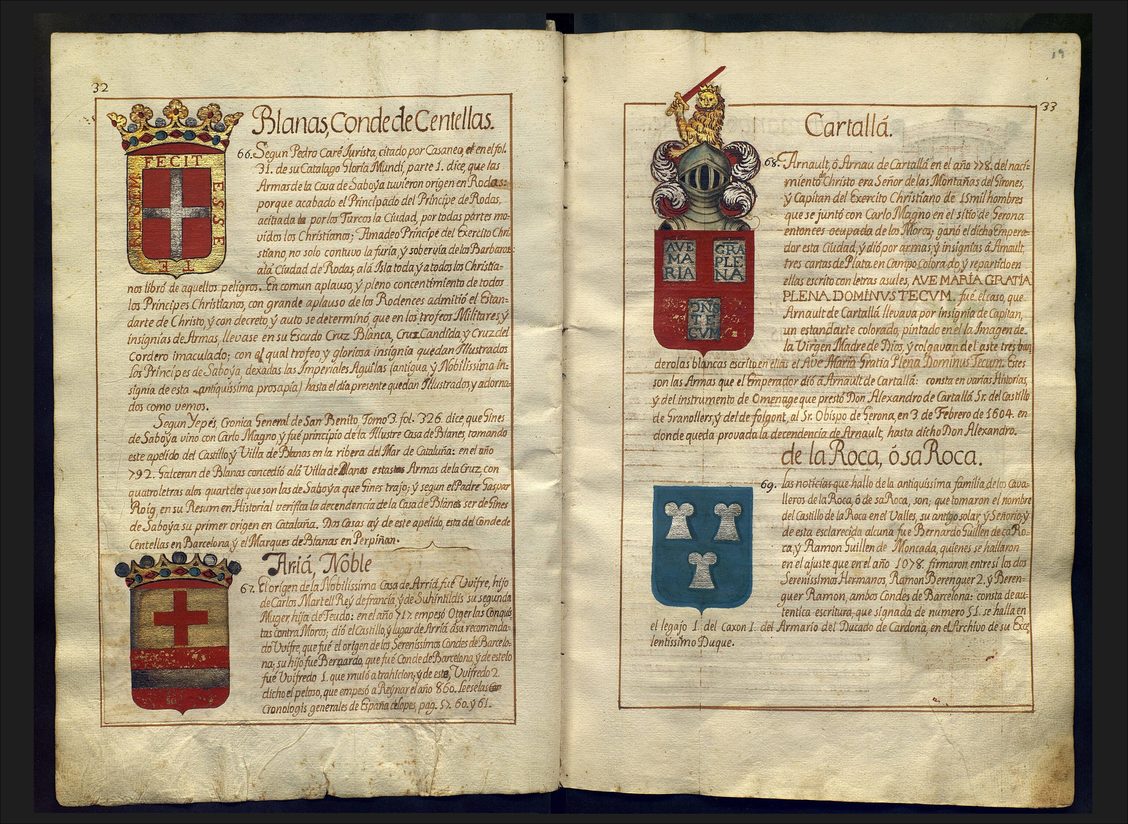 32
Blanas, Conde de Centellas.
FECIT
ESSE
TE
66. Segun Pedro Caré Iurista, citado por Casaneo, et en el fol.
31. de su Catalago Gloria Mundi, parte 1. dice, que las
Armas de la Casa de Saboya tuvieron origen en Rodas:
porque acabado el Principado del Principe de Rodas,
acitiada la por los Turcos la Ciudad, por todas partes mo-
vidos los Christianos; Amadeo Principe del Exercito Chri-
stiano no solo contuvo la furia, y sobervia de los Barbaros:
alá Ciudad de Rodas, alá Isla toda y a todos los Christia-
nos libró de aquellos peligros. En comun aplauso, y pleno concentimiento de todos
los Principes Christianos, con grande aplauso de los Rodences admitió el Estan-
darte de Christo, y con decreto, y auto se determinó que en los trofeos Militares, y
insignias de Armas, llevase en su Escudo Cruz Blanca, Cruz Candida y Cruz del
Cordero imaculado; con el qual trofeo y gloriosa insignia quedan Illustrados
los Principes de Saboya, dexadas las Imperiales Aguilas (antigua, y Nobilissima in-
signia de esta antiquissima prosapia) hasta el dia presente quedan Illustrados, y adorna-
dos como vemos.
Segun Yepés Cronica General de San Benito, Tomo 3. fol. 326. dice que Gines
de Saboya vino con Carlo Magno y fué principio de la Illustre Casa de Blanes, tomando
este apelido del Castillo, y Villa de Blanas en la ribera del Mar de Cataluña: en el año
792. Galceran de Blanas concedió alá Villa de Blanas estas Armas de la Cruz, con
quatro letras alos quarteles que son las de Saboya que Gines trajo; y segun el Padre Gaspar
Roig, en su Resum en Historial verifica la decendencia de la Casa de Blanes ser de Gines
de Saboya su primer origen en Cataluña. Dos Casas ay de este apelido, esta del Conde de
Centellas en Barcelona y el Marques de Blanas en Perpiñan.
Ariá, Noble
67. El origen de la Nobilissima Casa de Arriá, fué Uvifre, hijo
de Carlos Martell Rey de francia, y de Suhintildis su segunda
Muger, hija de Teudo: en el año 717. empesó Otger las Conquis
tas contra Moros; dió el Castillo, y lugar de Arriá, asu recomenda-
do Uvifre, que fué el origen de los Serenissimos Condes de Barcelo-
na; su hijo fué Bernardo, que fué Conde de Barcelona, y de este lo
fué Uvifredo 1. que murió a trahicion; y de este, Uvifredo 2.
dicho el peloso, que empesó a Reynar el año 860. Leese las
Cronologis generales de España de lopes, pag. 52. 60. y 61.
19
33
Cartallá.
AVE
MA
RIA
GRA
PLE
NA
DÑS
TE
CVM
68. Arnault, ó Arnau de Cartallá en el año 778. del naci-
miento de Christo era Señor de las Montañas del Girones,
y Capitan del Exercito Christiano de 15 mil hombres
que se juntó con Carlo Magno en el sitio de Gerona
entonces ocupada de los Moros; ganó el dicho Empera-
dor esta Ciudad, y dió por armas, y insignias á Arnault,
tres cartas de Plata en Campo Colorado, y repartido en
ellas escrito con letras asules, AVE MARÍA GRATIA
PLENA DOMINVS TECVM. fué el caso, que
Arnault de Cartallá llevava por insignia de Capitan,
un estandarte colorado, pintado en el la Imagen de
la Virgen Madre de Dios, y colgavan del aste tres ban
derolas blancas escrito en ellas el Ave Maria Gratia Plena Dominus Tecum. Estes
son las Armas que el Emperador dió á Arnault de Cartallá: consta en varias Historias,
y del instrumento de Omenage que prestó Don Alexandro de Cartallá Sr. del Castillo
de Granollers, y del de folgont, al Sr. Obispo de Gerona, en 3 de Febrero de 1604. en
donde queda provada la decendencia de Arnault, hasta dicho Don Alexandro.
de la Roca, ó sa Roca.
69. las noticias que hallo de la antiquissima familia de los Cava-
lleros de la Roca, ó de sa Roca, son; que tomaron el nombre
del Castillo de la Roca en el Valles, su antigo solar, y Señorio; y
de esta esclarecida alcuna fue Bernardo Guillen de ça Ro-
ca, y Ramon Guillen de Moncada, quienes se hallaron
en el ajuste que en el año 1078. firmaron entresi los dos
Serenissimos Hermanos, Ramon Berenguer 2. y Beren-
guer Ramon, ambos Condes de Barcelona: consta de au-
tentica escritura, que signada de numero 51. se halla en
el legajo 1. del caxon 1. del Armario del Ducado de Cardona, en el Archivo de su Exce
lentissimo Duque.